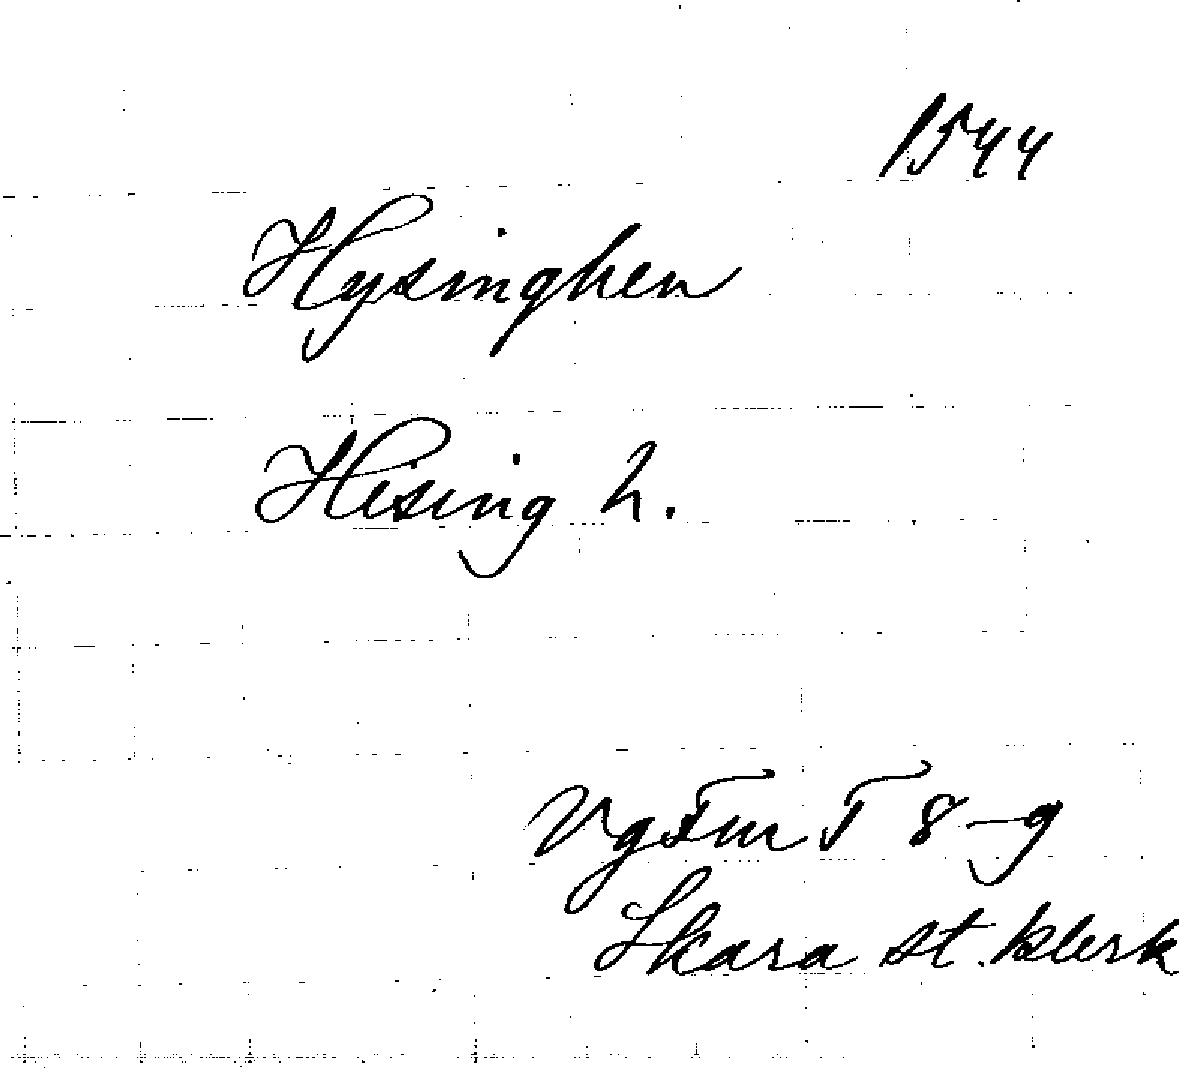 1544
Hysinghen
Hising h.
VgFm I 8-9
Skara st. klerk